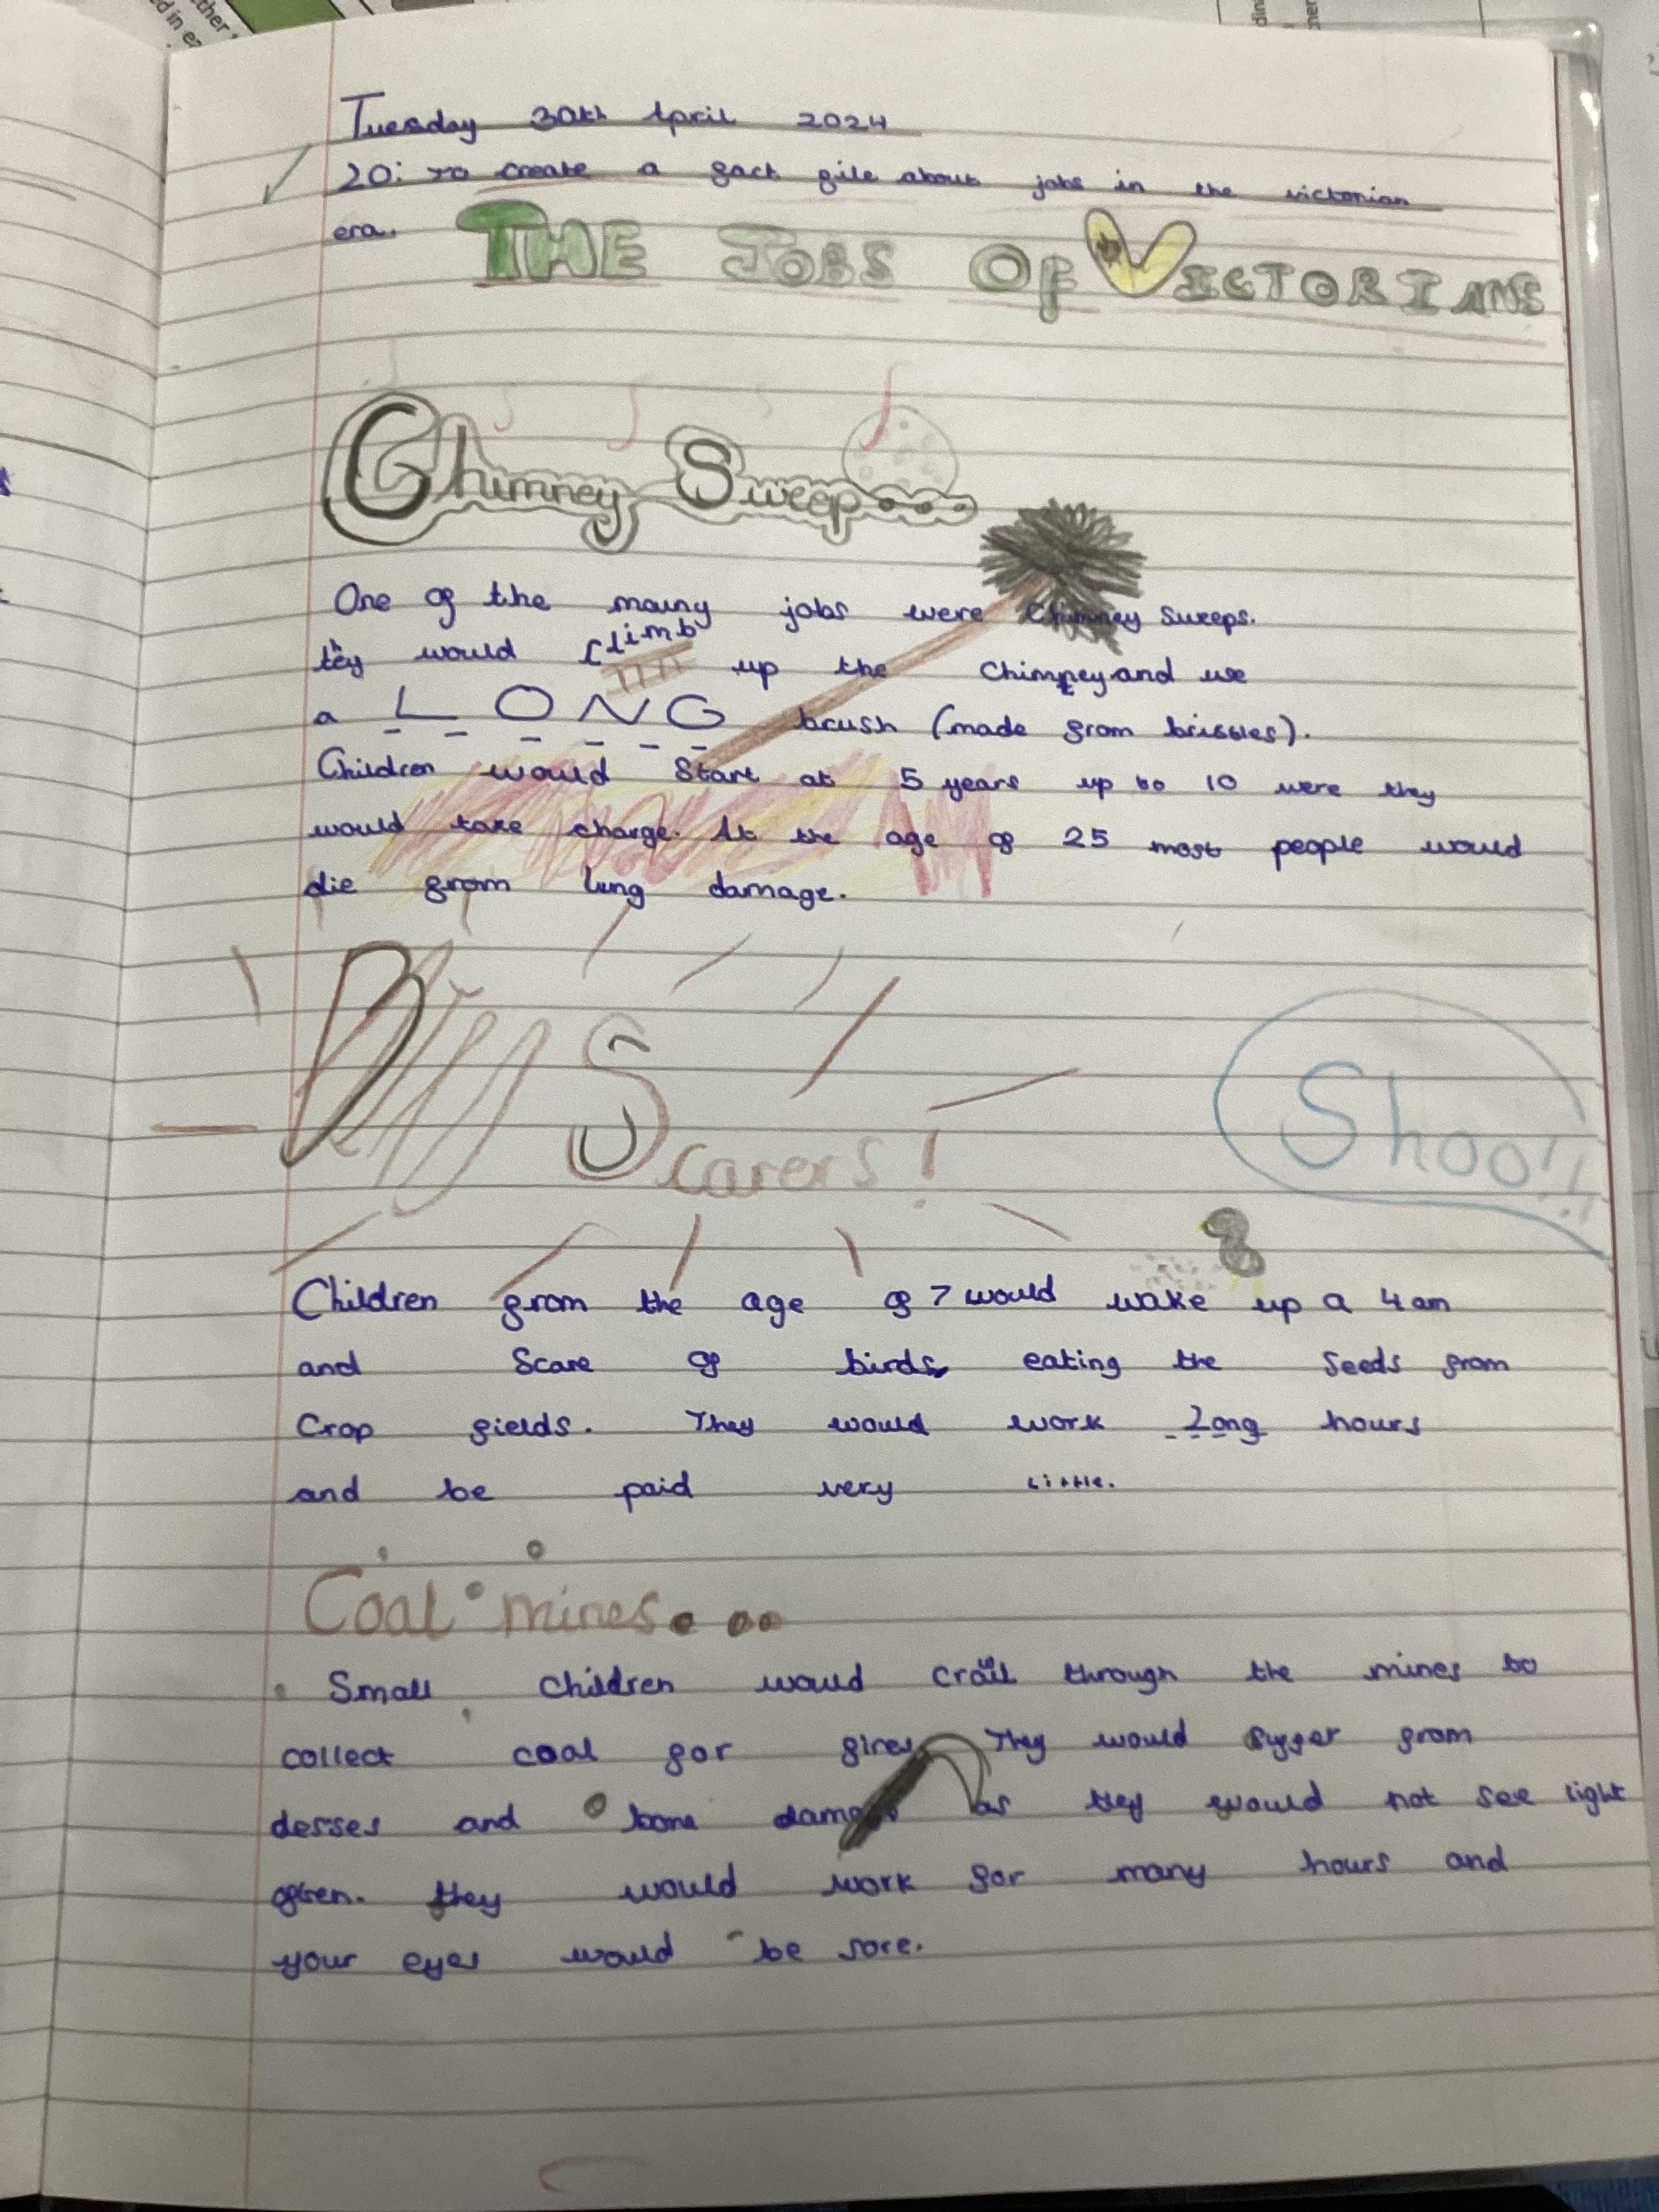 Tuesday 30th April 2024
LO: To create a fact file about jobs in the victorian
era.
THE JOBS OF VICTORIANS
Chimney Sweep...
One of the mainy jobs were Chimney Sweeps.
they would climb up the Chimney and use
a LONG brush (made from brissles).
Children would Start at 5 years up to 10 were they
would take charge. At the age of 25 most people would
die from lung damage.
Scarers!
Shoo!!
Children from the age of 7 would wake up a 4am
and Scare of birds eating the Seeds from
Crop fields. They would work Long hours
and be paid very Little.
Coal mines...
Small children would crawl through the mines to
collect coal for fires They would suffer from
desses and bone damage as they would not see light
often. they would work for many hours and
your eyes would be sore.